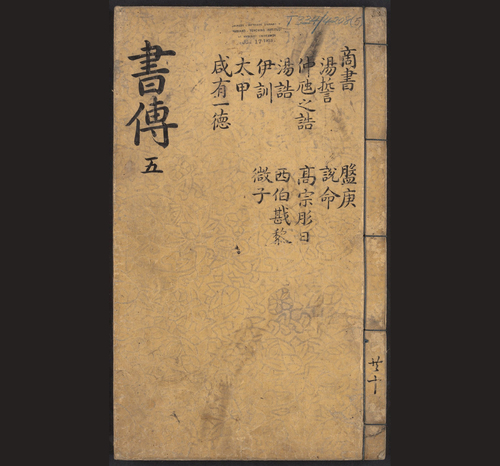 書傳 五
商書
湯誓
仲虺之誥
湯誥
伊訓
太甲
咸有一德
盤庚
說命
高宗肜日
西伯戡黎
微子
共十